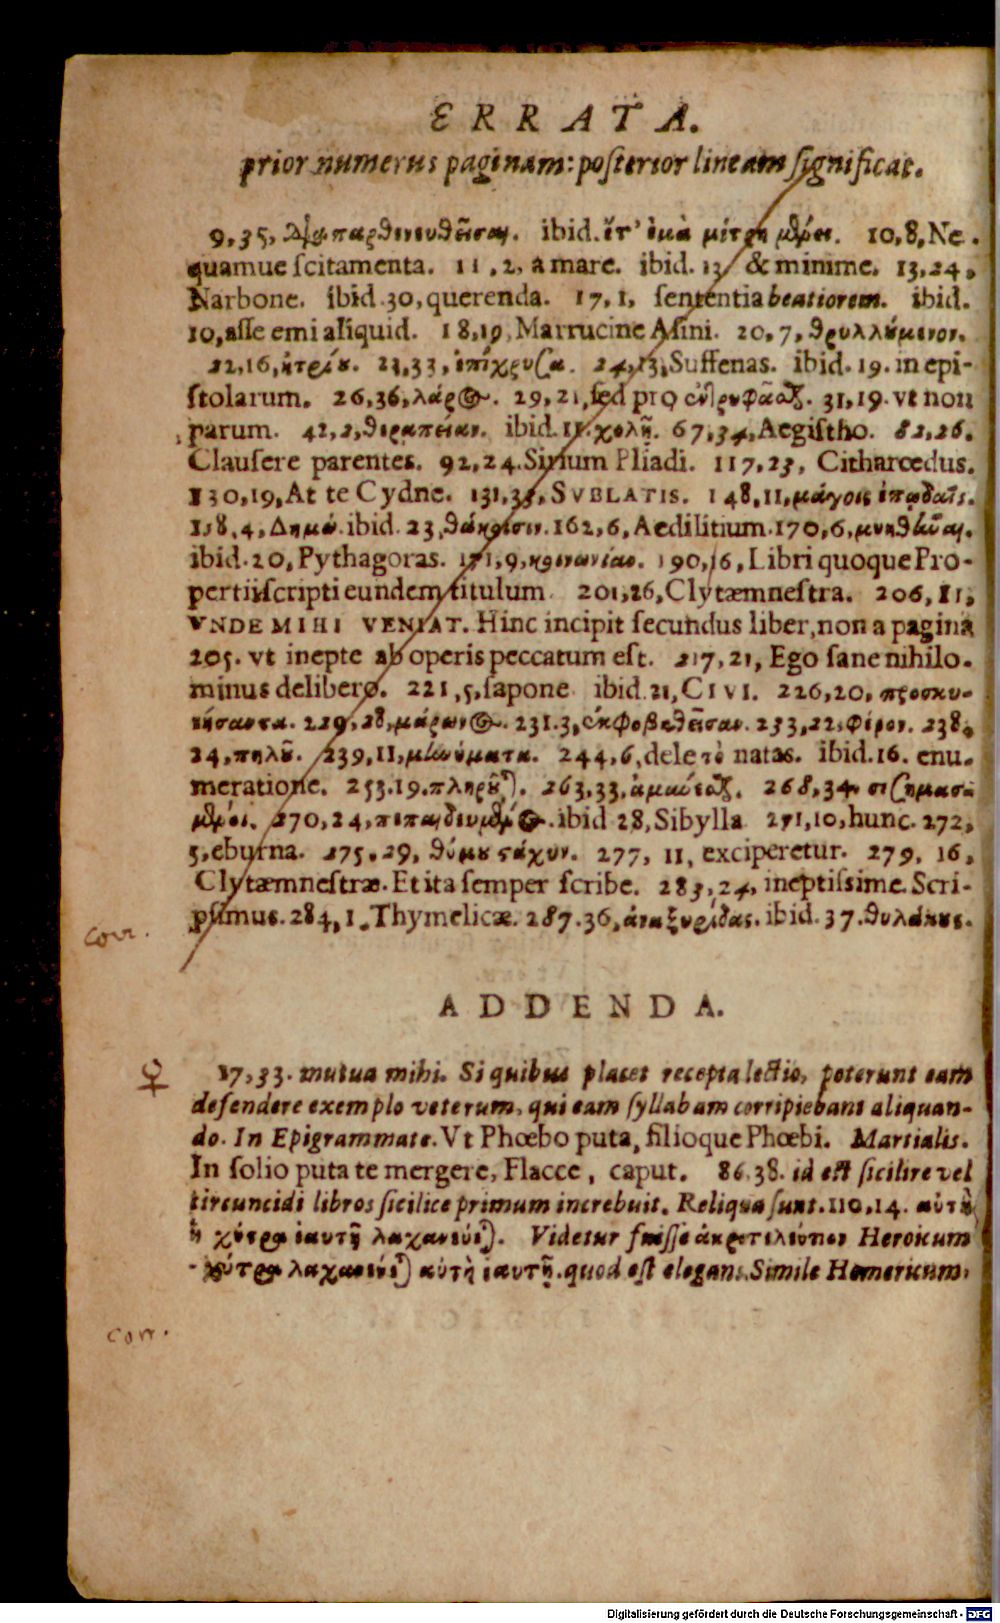 ERRATA.
prior numerus paginam: posterior lineam significat.
9,35, ibid. 10,8, Ne.
quamue scitamenta. 11,2, amare. ibid. 13 & minime. 13,24,
Narbone. ibid. 30, querenda. 17,1, sententia beatiorem. ibid.
10, asse emi aliquid. 18,19, Marrucine Asini. 20,7, θρυλλούμενον.
22,16, ἰατρία. 23,33, 24,13, Suffenas. ibid. 19. in epi-
stolarum. 26,36, λάρος. 29,21, sed pro 31,19. vt non
parum. 42,2, θεραπείαν. ibid. 11. χολῇ. 67,34, Aegistho. 82,26.
Clausere parentes. 92,24. Sirium Pliadi. 117,23, Citharœdus.
130,19, At te Cydne. 131,33, SVBLATIS. 148,11, μάγοις ἐπῳδαῖς.
158,4, Δημώ. ibid. 23, 162,6, Aedilitium. 170,6,
ibid. 20, Pythagoras. 171,9, κοινωνίας. 190,16, Libri quoque Pro-
pertii scripti eundem titulum. 201,26, Clytæmnestra. 206,11,
VNDE MIHI VENIAT. Hinc incipit secundus liber, non a pagina
205. vt inepte ab operis peccatum est. 217,21, Ego sane nihilo-
minus delibero. 221,5, sapone ibid. 21, CIVI. 226,20, προσκυ-
νήσαντα. 229,28, μάρωνος. 231.3, ἐκφοβηθεῖσαν. 233,22, φέρον. 238,
24, πηλοῦ. 239,11, μηνύματα. 244,6, dele τὸ natas. ibid. 16. enu-
meratione. 253.19. πληροῦται. 263,33, 268,34.
270,24, πεπαιδευμένος. ibid 28, Sibylla 271,10, hunc. 272,
5, eburna. 275.29, θύμου στάχυν. 277, 11, exciperetur. 279, 16,
Clytæmnestræ. Et ita semper scribe. 283,24, ineptissime. Scri-
psimus. 284,1. Thymelicæ. 287.36, ἀναξυρίδας. ibid. 37. θυλάκους.
corr.
ADDENDA.
♀ 17,33. mutua mihi. Si quibus placet recepta lectio, poterunt eam
defendere exemplo veterum, qui eam syllabam corripiebant aliquan-
do. In Epigrammate. Vt Phœbo puta, filioque Phœbi. Martialis.
In solio puta te mergere, Flacce, caput. 86.38. id est sicilire vel
circuncidi libros sicilice primum increbuit. Reliqua sunt. 110,14. αὐτὴ
ἡ χύτρα ἑαυτῇ λαχανεύεται. Videtur fuisse ἀκροτελεύτιον Heroicum
χύτρα λαχανεύεται αὐτὴ ἑαυτῇ. quod est elegans. Simile Homericum,
corr.
Digitalisierung gefördert durch die Deutsche Forschungsgemeinschaft - DFG